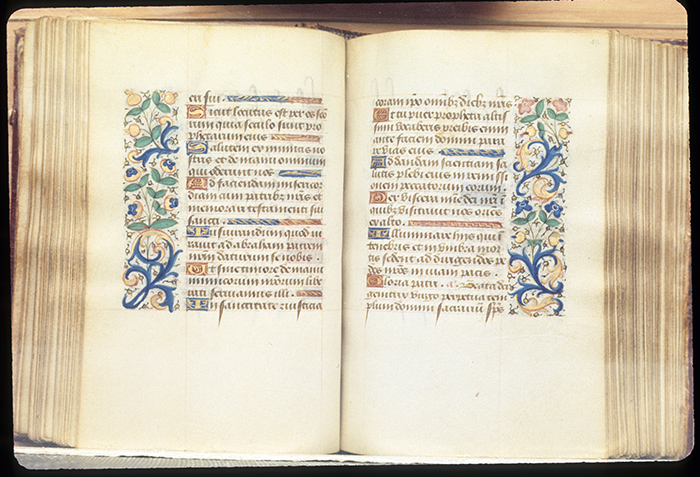 eri sui
Sicut locutus est per os scō
rum qui a seculo sunt pro
phetarum eius
Salutem ex inimicis no
stris et de manu omnium
qui oderunt nos
Ad faciendam misericor
diam cum patribus nrīs et
memorari testamenti sui
sancti
Iusiurandum quod iu
rauit ad abraham patrem
nrm daturum se nobis
Ut sine timore de manu
inimicorum nrōrum libe
rati seruiamus illi
In sanctitate et iusticia
coram ipō omnibz diebz nrīs
Et tu puer propheta altissi
mi uocaberis preibis enim
ante faciem domini para
re vias eius
Ad dandam scientiam sa
lutis plebi eius in remissi
onem peccatorum eorum
Per viscera mīe dei nrī ī
quibz visitauit nos oriens
ex alto
Illuminare his qui ī
tenebris et in vmbra mor
tis sedent ad dirigendos pe
des nrōs in viam pacis
Gloria patri. a. Beata dei
genitrix virgo perpetua tem
plum domini sacrariū sp̄s